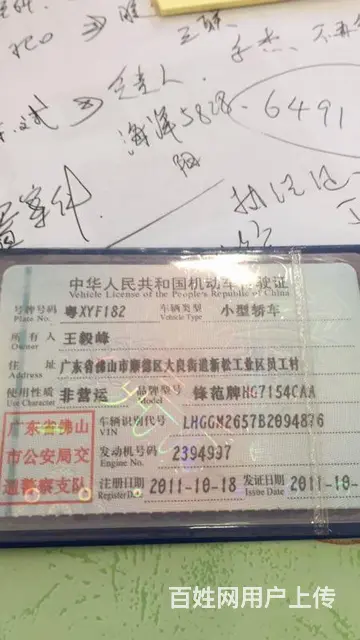 全责人
海洋5828.6491
案件
中华人民共和国机动车行驶证
Vehicle License of the People's Republic of China
号牌号码 粤XYF182 车辆类型 小型轿车
Plate No. Vehicle Type
所有人 王毅峰
Owner
住址 广东省佛山市顺德区大良街道新松工业区员工村
Address
使用性质 非营运 品牌型号 锋范牌HG7154CAA
Use Character Model
广东省佛山市公安局交通警察支队
车辆识别代号 LHGGM2657B2094876
VIN
发动机号码 2394997
Engine No.
注册日期 2011-10-18 发证日期 2011-10-
Register Date Issue Date
百姓网用户上传